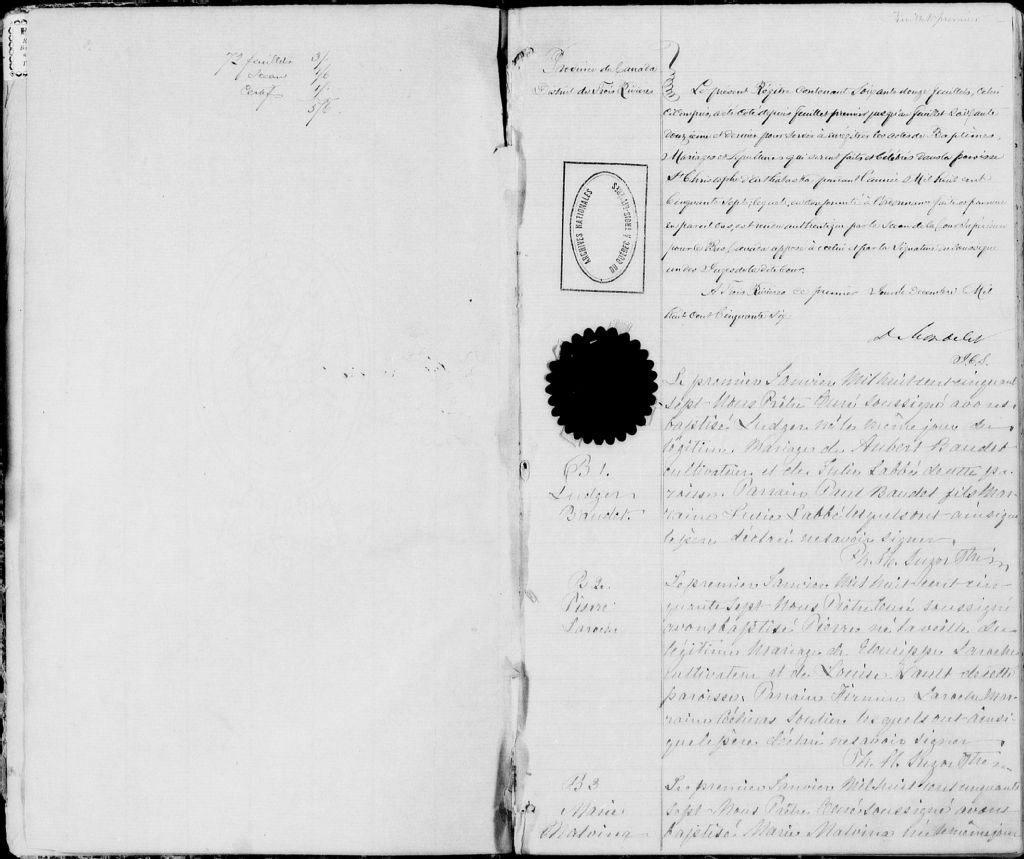 72 feuillets 3/.
Sceau 1/6
Certf 1/.
5/6.
Feuillet premier
Province du Canada
District des Trois Rivières
Le présent Régistre contenant Soixante douze feuillets, celui
ci compris, a été coté depuis feuillet premier jusqu'au feuillet Soixante
douzième et dernier pour servir à enrégistrer les actes de Baptêmes,
Mariages et Sépultures qui seront faits et célébrés dans la paroisse
St Christophe d'Arthabaska pendant l'année Mil huit cent
Cinquante Sept; lequel, en conformité à l'ordonnance faite et pourvue
en pareil cas, est rendu authentique par le Sceau de la Cour Supérieure
pour le Bas Canada apposé à celui et par la Signature du soussigné
un des Juges de la dite Cour.
A Trois Rivières ce premier Jour de Decembre Mil
huit cent Cinquante Six
D Mondelet
J.C.S.
ARCHIVES NATIONALES
DU QUÉBEC À TROIS-RIVIÈRES
B 1.
Ludger
Baudet.
Le premier Janvier Mil huit cent cinquante
sept Nous Prêtre Curé soussigné avons
baptisé Ludger né le même jour du
légitime Mariage de Aubert Baudet
cultivateur et de Julie Labbé de cette pa-
roisse. Parrain Paul Baudet fils Mar-
raine Lucie Labbé lesquels ont ainsi que
le père déclaré ne savoir signer.
Ph. H. Suzor Ptre
B 2.
Pierre
Laroche
Le premier Janvier Mil huit cent cin-
quante sept Nous Prêtre Curé soussigné
avons baptisé Pierre né la veille du
légitime Mariage de Laroche
cultivateur et de Louise Hault de cette
paroisse. Parrain Firmin Laroche Mar-
raine Soulier lesquels ont ainsi
que le père déclaré ne savoir signer
Ph. H. Suzor Ptre
B 3
Marie
Malvina
Le premier Janvier Mil huit cent cinquante
sept Nous Prêtre Curé soussigné avons
baptisé Marie Malvina née le même jour